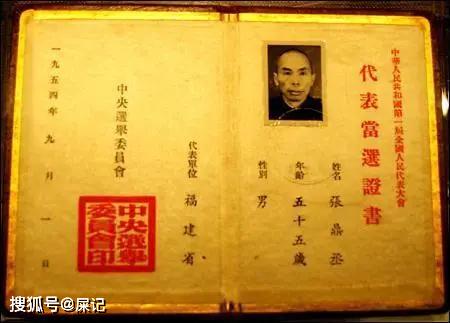 中華人民共和國第一屆全國人民代表大會
代表當選證書
姓名 張鼎丞
年齡 五十五歲
性別 男
代表單位 福建省
中央選舉委員會
一九五四年九月一日
中央選舉
委員會印
搜狐号@屎记